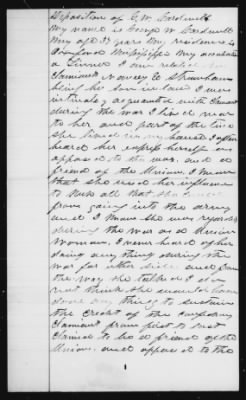 Deposition of G. W. Cardwell
My name is George W. Cardwell
My age 37 years My residence is
Mississippi My occupation
a Farmer I am related
Claimant Nancy E
being her son in law I was
intimately acquainted with Claimant
during the war I lived near
to her and part of the time
she lived in my house I often
heard her express herself as
opposed to the war. and a
friend of the Union. I know
that she used her influence
to keep all that
from going into the army
and I know she was regarded
during the war as a Union
Woman. I never heard of her
doing any thing during the
war for either side and from
the way she talked I do
not think she would have
done any thing to sustain
the Credit of the Confederacy
Claimant from first to last
Claimed to be a friend of the
Union. and opposed to the
1